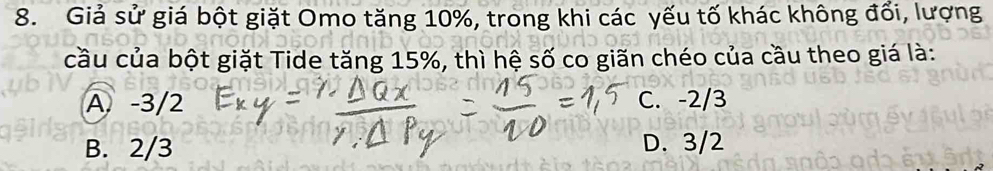 8. Giả sử giá bột giặt Omo tăng 10%, trong khi các yếu tố khác không đổi, lượng
cầu của bột giặt Tide tăng 15%, thì hệ số co giãn chéo của cầu theo giá là:
A. -3/2 Exy = %ΔQx / %ΔPy = 15/10 = 1,5 C. -2/3
B. 2/3 D. 3/2